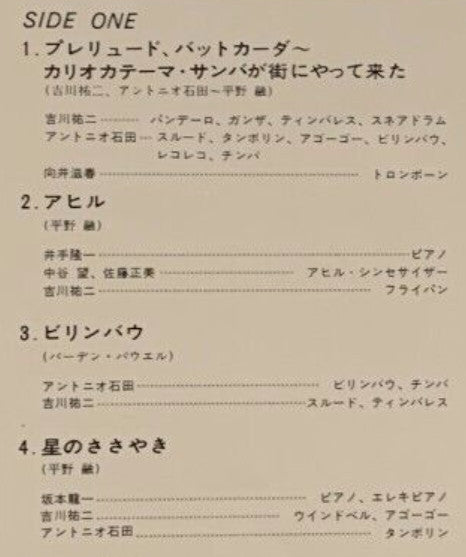 SIDE ONE
1. プレリュード、バットカーダ〜
カリオカテーマ・サンバが街にやって来た
(吉川祐二、アントニオ石田〜平野 融)
吉川祐二……… パンデーロ、ガンザ、ティンバレス、スネアドラム
アントニオ石田… スルード、タンボリン、アゴーゴー、ビリンバウ、
レコレコ、チンバ
向井滋春……… トロンボーン
2. アヒル
(平野 融)
井手隆一……… ピアノ
中谷 望、佐藤正美……… アヒル・シンセサイザー
吉川祐二……… フライパン
3. ビリンバウ
(バーデン・パウエル)
アントニオ石田……… ビリンバウ、チンバ
吉川祐二……… スルード、ティンバレス
4. 星のささやき
(平野 融)
坂本龍一……… ピアノ、エレキピアノ
吉川祐二……… ウインドベル、アゴーゴー
アントニオ石田……… タンボリン